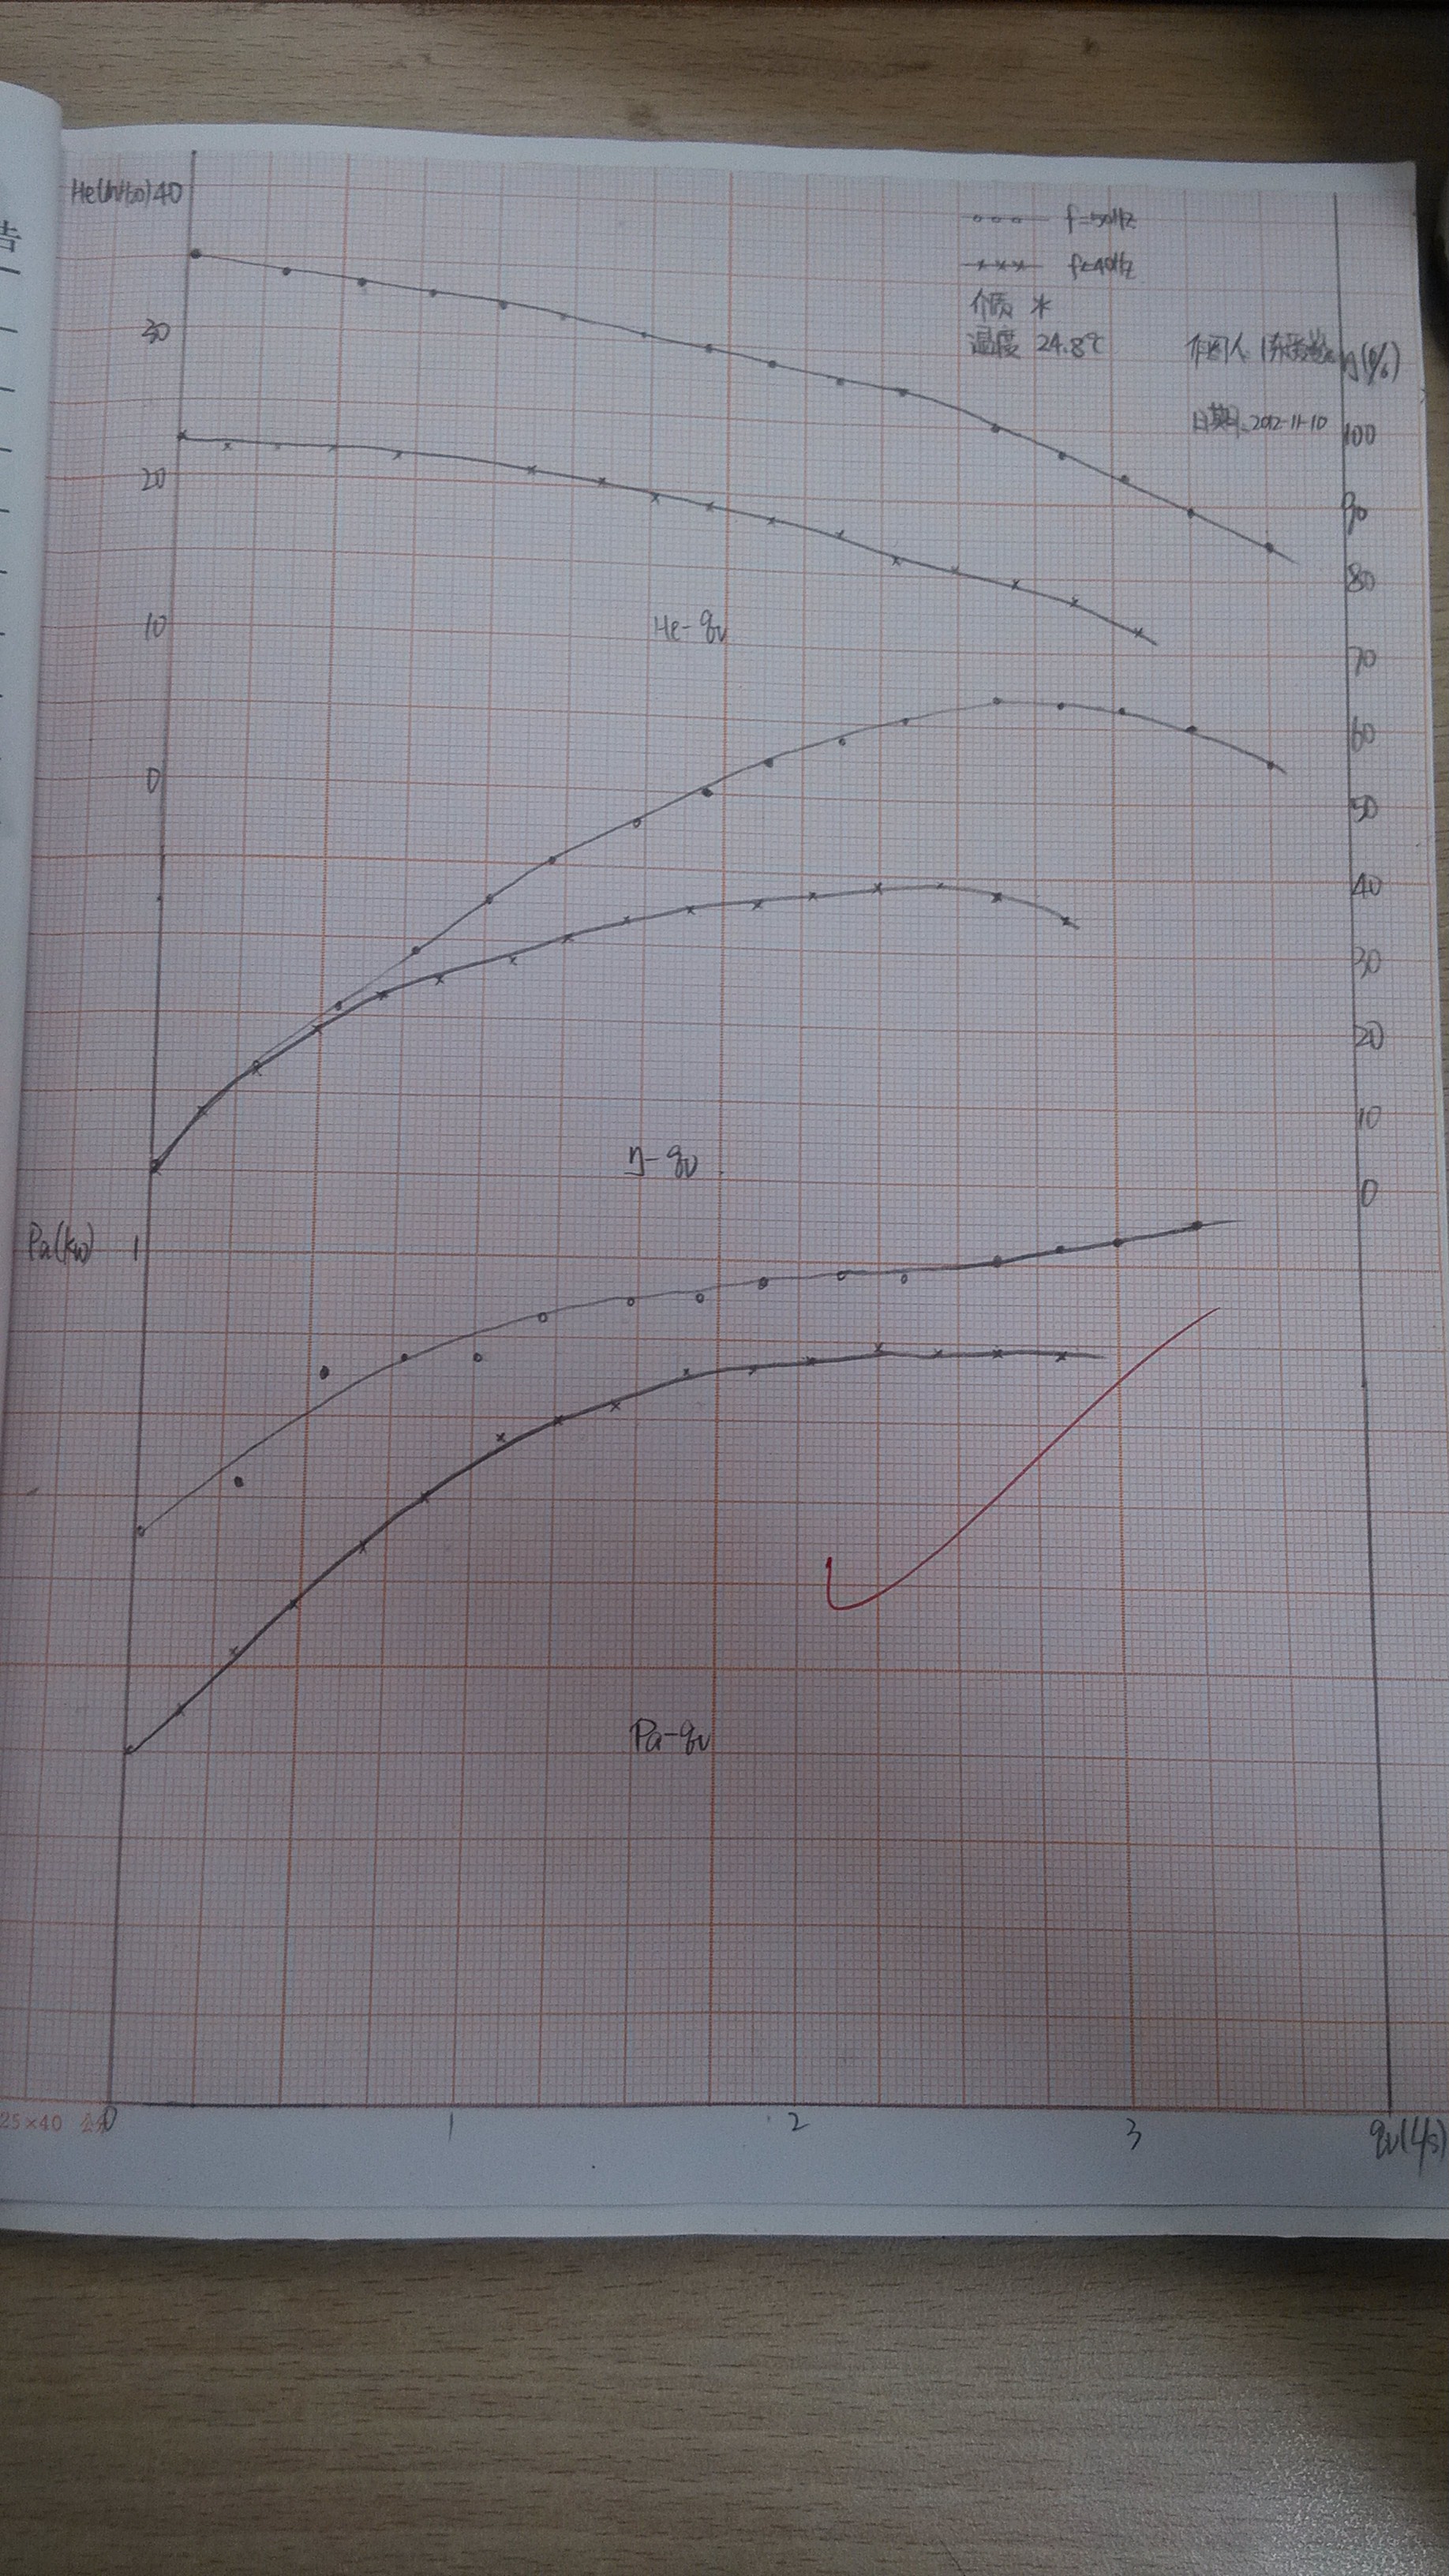 告
He(mH₂O) 40
30
20
10
0
f=50Hz
f=40Hz
介质 水
温度 24.8℃
作图人:
η(%)
日期:2012-11-10
100
90
80
70
60
50
40
30
20
10
0
He-qv
η-qv
Pa(kw) 1
Pa-qv
25×40 公分
0 1 2 3 qv(L/s)